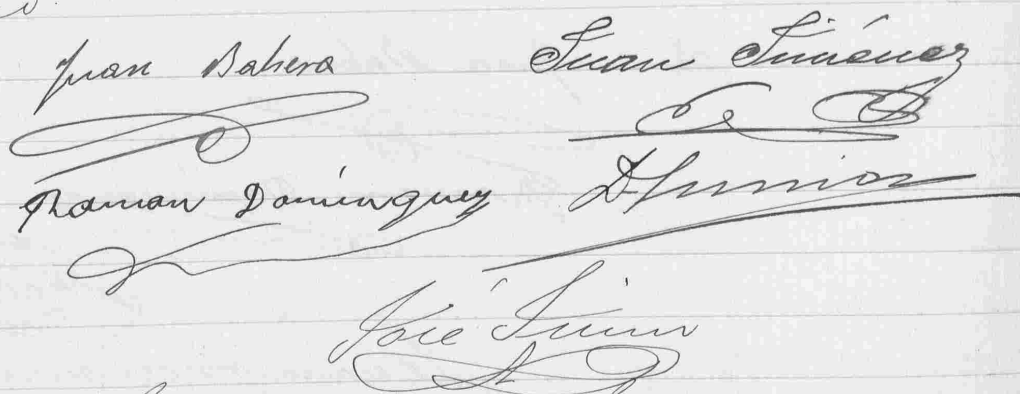 Juan Bahera Juan Jiménez
Ramon Domínguez D Junior
José